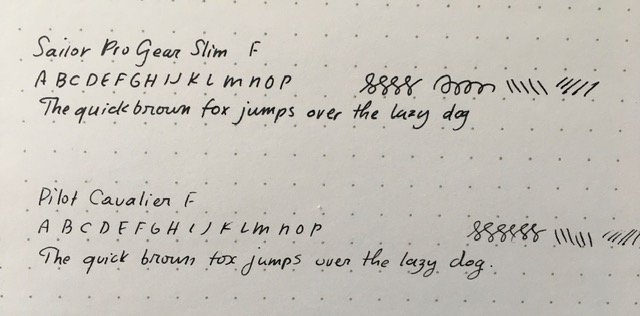 Sailor Pro Gear Slim F
A B C D E F G H I J K L m n O P
The quick brown fox jumps over the lazy dog
Pilot Cavalier F
A B C D E F G H I J K L m n O P
The quick brown fox jumps over the lazy dog.